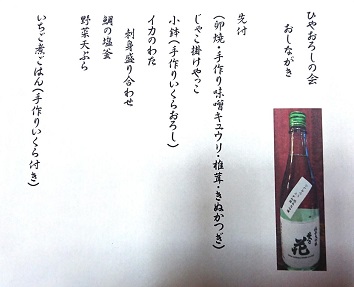 ひやおろしの会
おしながき
先付
(卵焼・手作り味噌キュウリ・椎茸・きぬかつぎ)
じゃこ掛けやっこ
小鉢(手作りいくらおろし)
イカのわた
刺身盛り合わせ
鯛の塩釜
野菜天ぷら
いちご煮ごはん(手作りいくら付き)